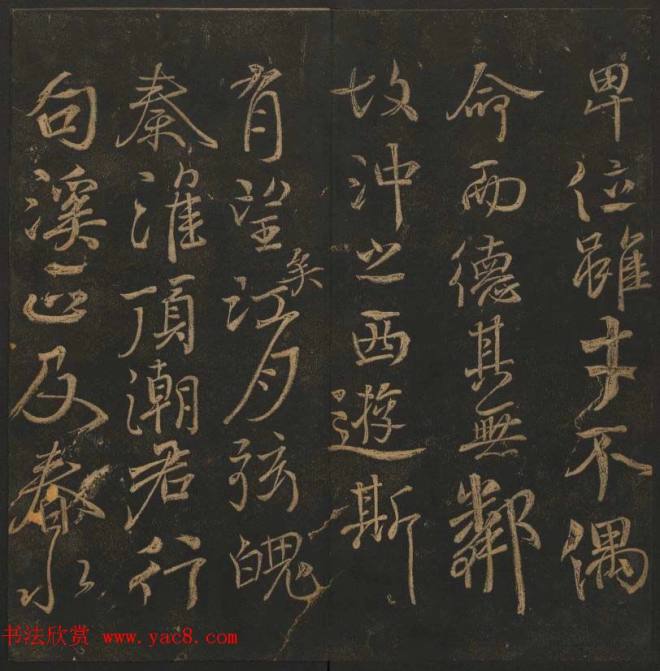 卑位雖才不偶
命而德其無鄰
故沖之西遊斯
有望矣江月弦魄
秦淮頂潮君行
句溪正及春水
书法欣赏 www.yac8.com